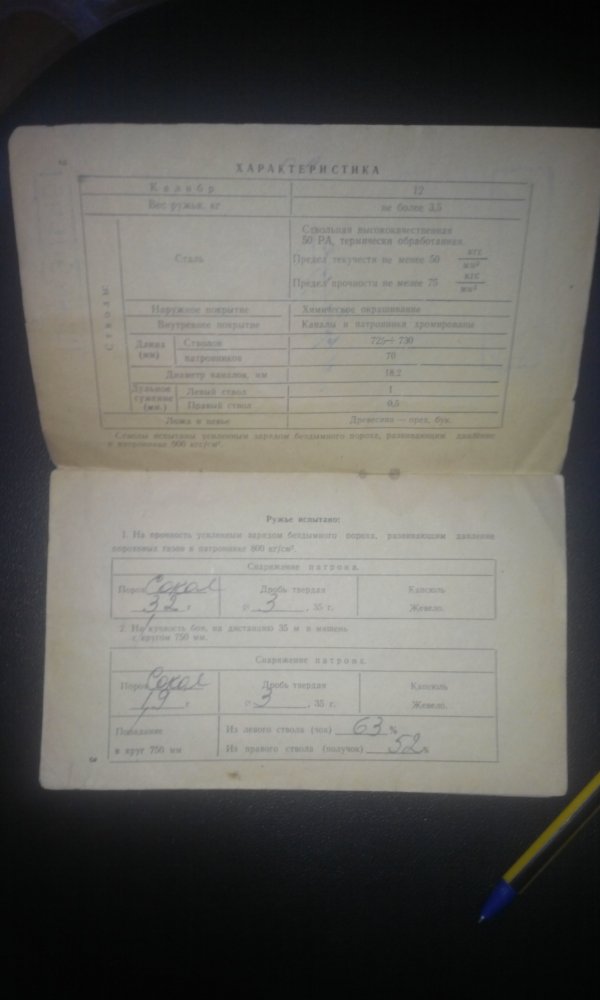 ХАРАКТЕРИСТИКА
Калибр 12
Вес ружья, кг не более 3,5
Стволы
Сталь Ствольная высококачественная
50 РА, термически обработанная.
Предел текучести не менее 50 кгс/мм²
Предел прочности не менее 75 кгс/мм²
Наружное покрытие Химическое окрашивание
Внутреннее покрытие Каналы и патронники хромированы
Длина (мм) Стволов 725÷730
патронников 70
Диаметр каналов, мм 18,2
Дульное сужение (мм.) Левый ствол 1
Правый ствол 0,5
Ложа и цевье Древесина — орех, бук.
Стволы испытаны усиленным зарядом бездымного пороха, развивающим давление
в патроннике 800 кгс/см².
Ружье испытано:
1. На прочность усиленным зарядом бездымного пороха, развивающим давление
пороховых газов в патроннике 800 кг/см².
Снаряжение патрона.
Порох Сокол Дробь твердая Капсюль
3,2 г ∅ 3, 35 г. Жевело.
2. На кучность боя, на дистанцию 35 м в мишень
с кругом 750 мм.
Снаряжение патрона.
Порох Сокол Дробь твердая Капсюль
1,9 г. ∅ 3, 35 г. Жевело.
Попадание Из левого ствола (чок) 63 %
в круг 750 мм Из правого ствола (получок) 52 %
3